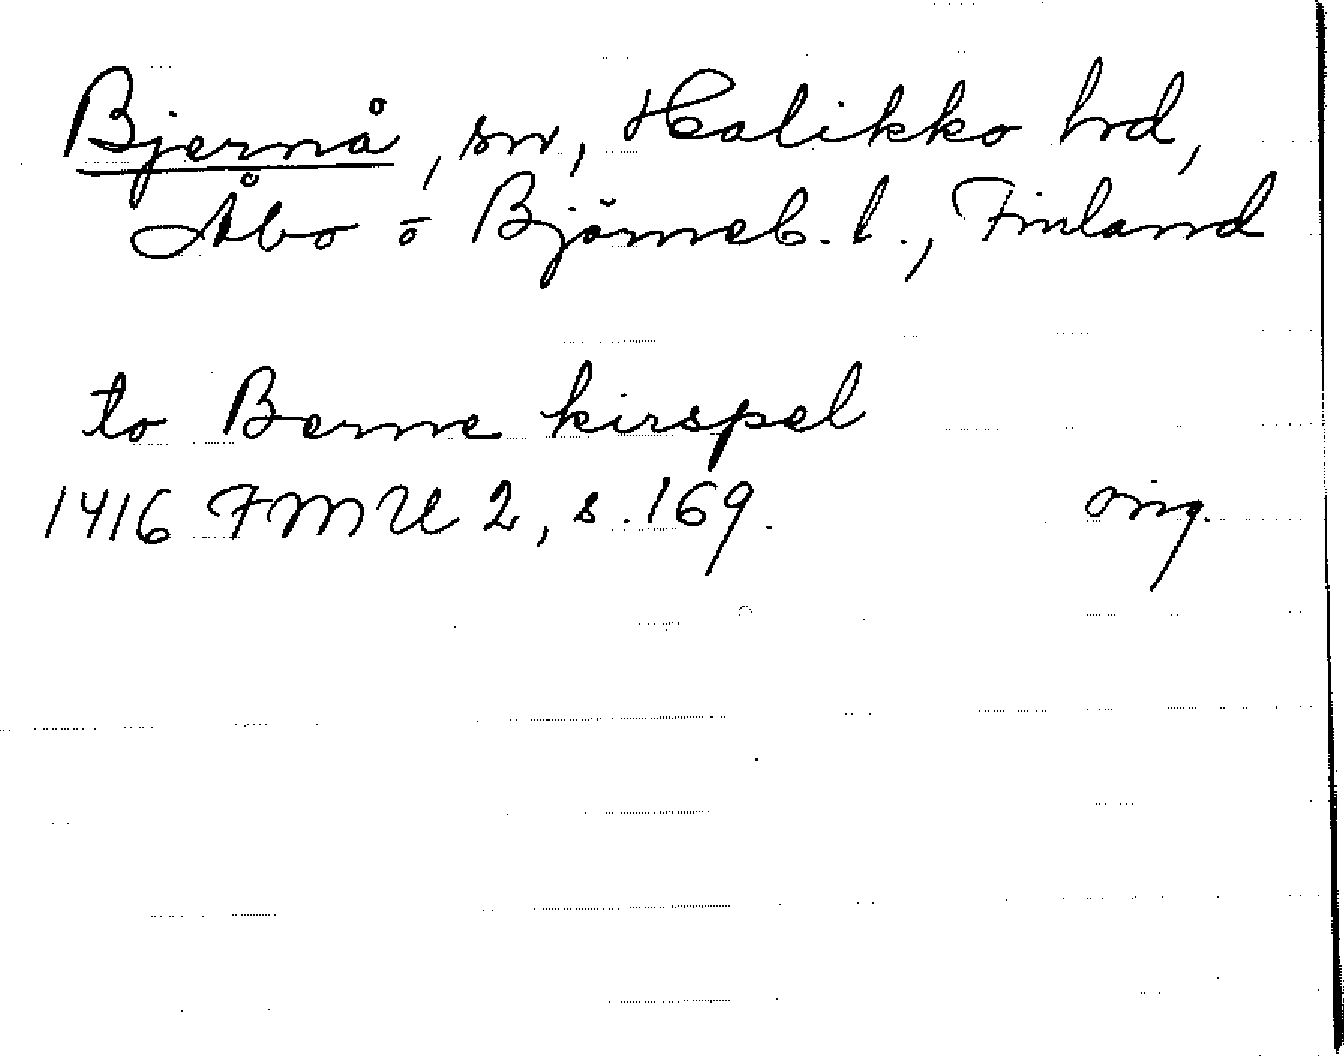 Bjernå, sn, Halikko hrd,
Åbo o Björneb. l., Finland
to Berne kirspel
1416 FMU 2, s. 169. orig.